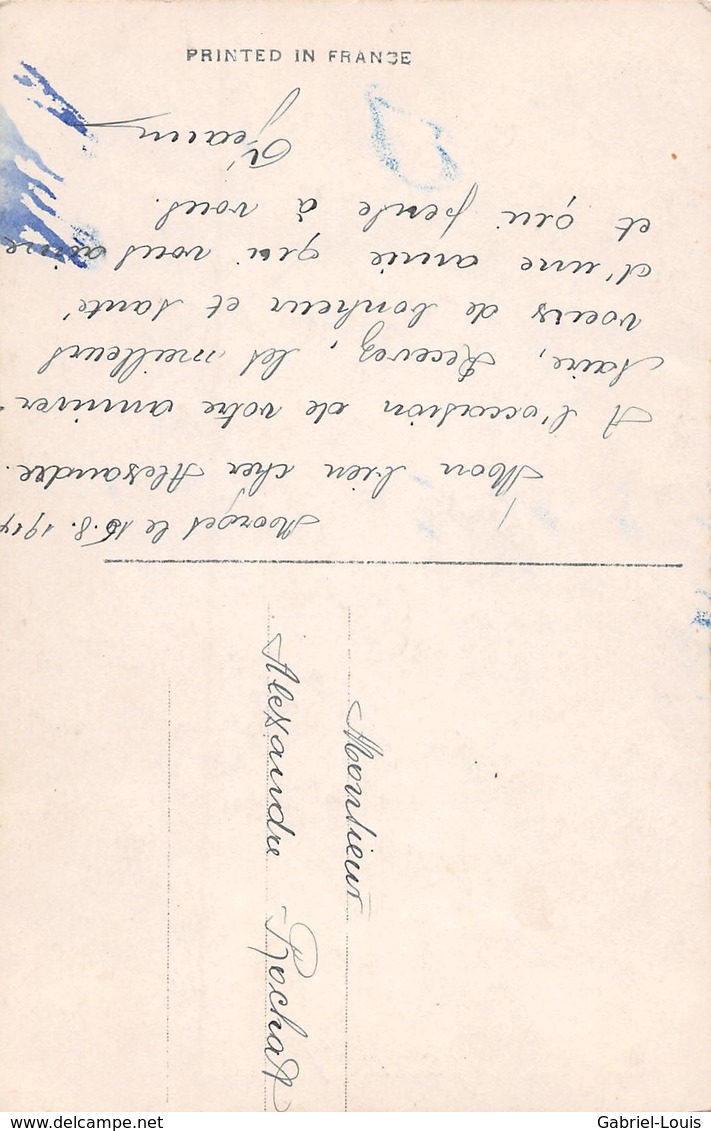 PRINTED IN FRANCE
Morges le 18.8.1914
Mon bien cher Alexandre.
A l'occasion de votre anniver-
saire, Recevez, les meilleurs
voeux de bonheur et santé
d'une amie qui vous aime
et qui pense à vous.
Monsieur
Alexandre Rochat
delcampe.net
Gabriel-Louis